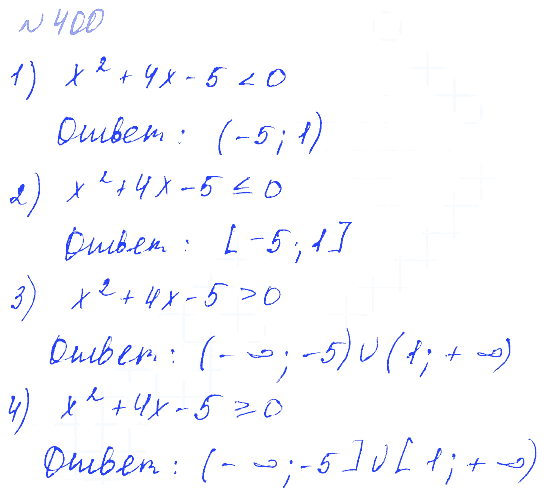 № 400
1) x² + 4x - 5 < 0
Ответ: (-5; 1)
2) x² + 4x - 5 ≤ 0
Ответ: [-5; 1]
3) x² + 4x - 5 > 0
Ответ: (-∞; -5) ∪ (1; +∞)
4) x² + 4x - 5 ≥ 0
Ответ: (-∞; -5] ∪ [1; +∞)